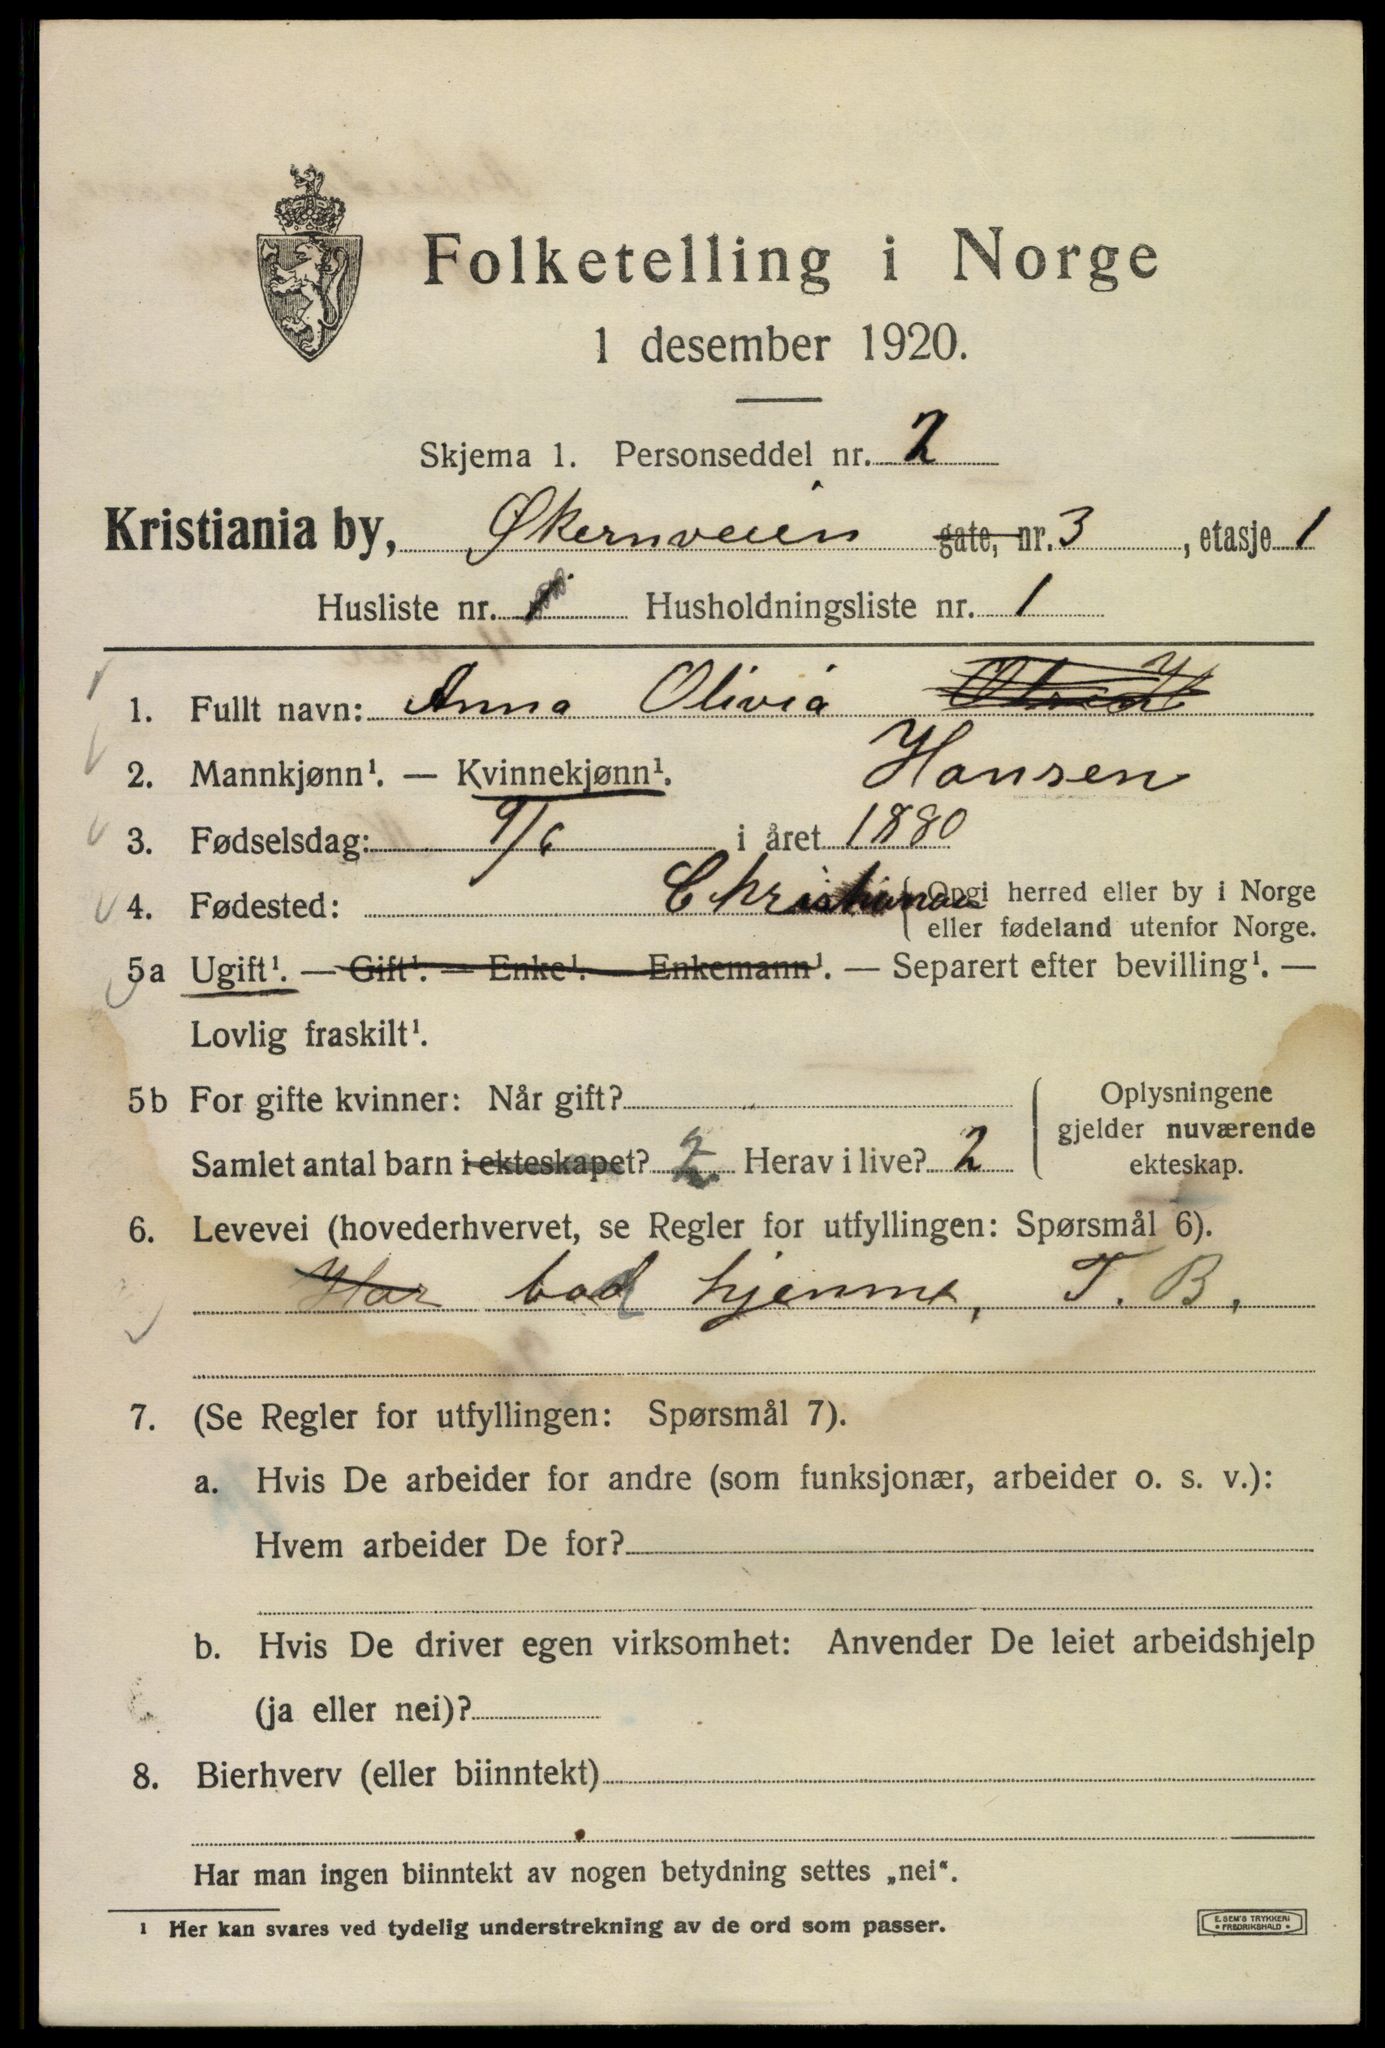 Folketelling i Norge
1 desember 1920.
Skjema 1. Personseddel nr. 2
Kristiania by, Økernveien gate, nr. 3, etasje 1
Husliste nr. 1 Husholdningsliste nr. 1
1. Fullt navn: Anna Olivia
2. Mannkjønn¹. — Kvinnekjønn¹. Hansen
3. Fødselsdag: 9/6 i året 1880
4. Fødested: Christiania Opgi herred eller by i Norge
eller fødeland utenfor Norge.
5a Ugift¹. — Gift¹. — Enke¹. — Enkemann¹. — Separert efter bevilling¹. —
Lovlig fraskilt¹.
5b For gifte kvinner: Når gift?
Samlet antal barn i ekteskapet? 2 Herav i live? 2
Oplysningene
gjelder nuværende
ekteskap.
6. Levevei (hovederhvervet, se Regler for utfyllingen: Spørsmål 6).
Har hjemme, T. B.
7. (Se Regler for utfyllingen: Spørsmål 7).
a. Hvis De arbeider for andre (som funksjonær, arbeider o. s. v.):
Hvem arbeider De for?
b. Hvis De driver egen virksomhet: Anvender De leiet arbeidshjelp
(ja eller nei)?
8. Bierhverv (eller biinntekt)
Har man ingen biinntekt av nogen betydning settes „nei“.
¹ Her kan svares ved tydelig understrekning av de ord som passer.
E. SEM'S TRYKKERI
• FREDRIKSHALD •